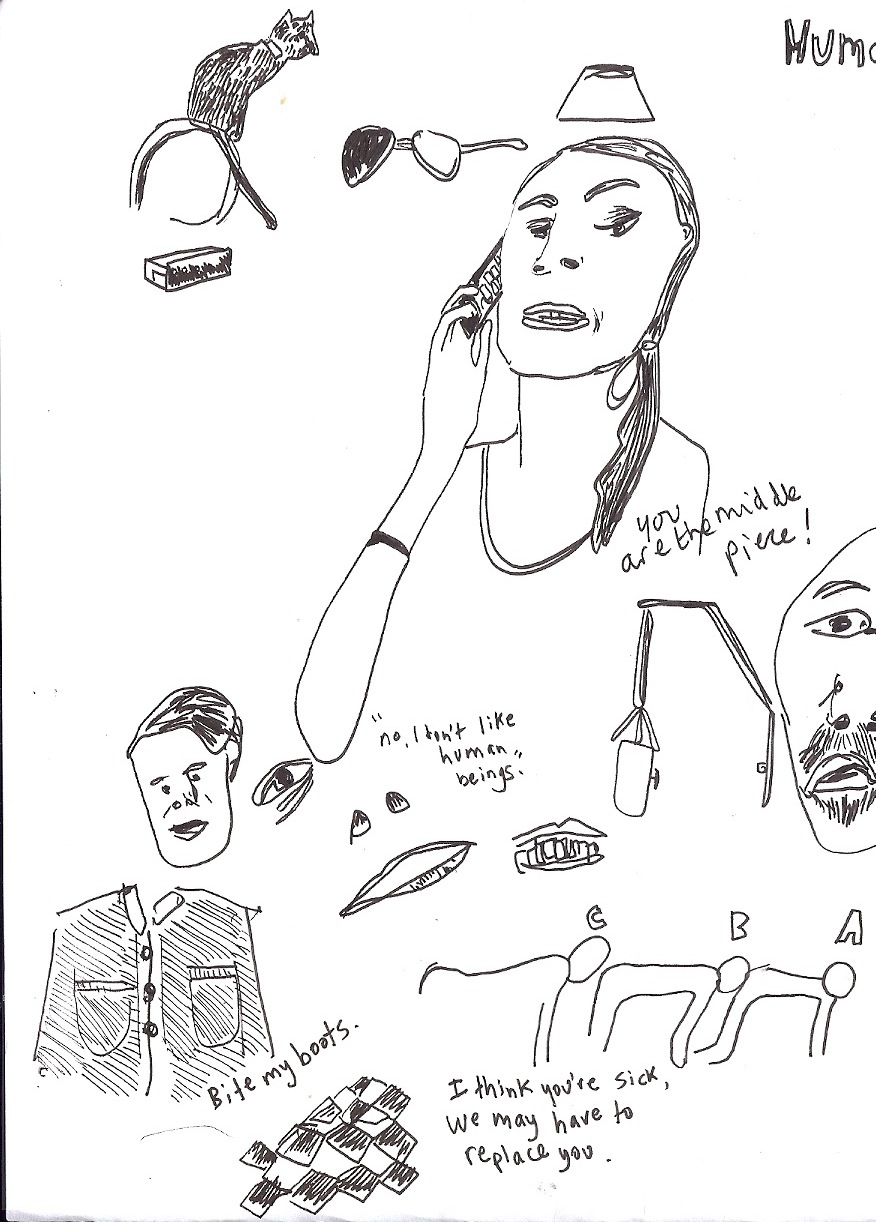 Huma
you
are the middle
piece!
"no, I don't like
human
beings."
C B A
Bite my boots.
I think you're sick,
we may have to
replace you.